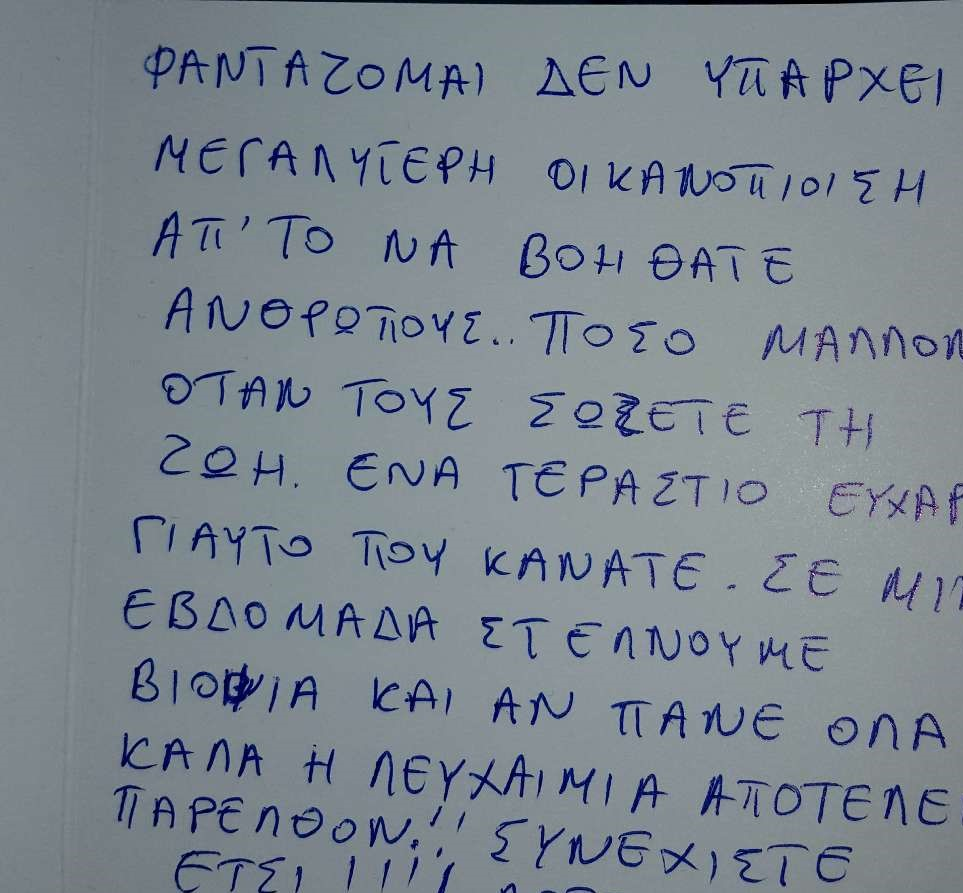 ΦΑΝΤΑΖΟΜΑΙ ΔΕΝ ΥΠΑΡΧΕΙ
ΜΕΓΑΛΥΤΕΡΗ ΟΙΚΑΝΟΠΙΟΙΣΗ
ΑΠ' ΤΟ ΝΑ ΒΟΗΘΑΤΕ
ΑΝΘΡΩΠΟΥΣ.. ΠΟΣΟ ΜΑΛΛΟΝ
ΟΤΑΝ ΤΟΥΣ ΣΩΖΕΤΕ ΤΗ
ΖΩΗ. ΕΝΑ ΤΕΡΑΣΤΙΟ ΕΥΧΑΡ
ΓΙΑΥΤΟ ΠΟΥ ΚΑΝΑΤΕ. ΣΕ
ΕΒΔΟΜΑΔΑ ΣΤΕΛΝΟΥΜΕ
ΒΙΟΨΙΑ ΚΑΙ ΑΝ ΠΑΝΕ ΟΛΑ
ΚΑΛΑ Η ΛΕΥΧΑΙΜΙΑ ΑΠΟΤΕΛΕ
ΠΑΡΕΛΘΟΝ!! ΣΥΝΕΧΙΣΤΕ
ΕΤΣΙ !!!!